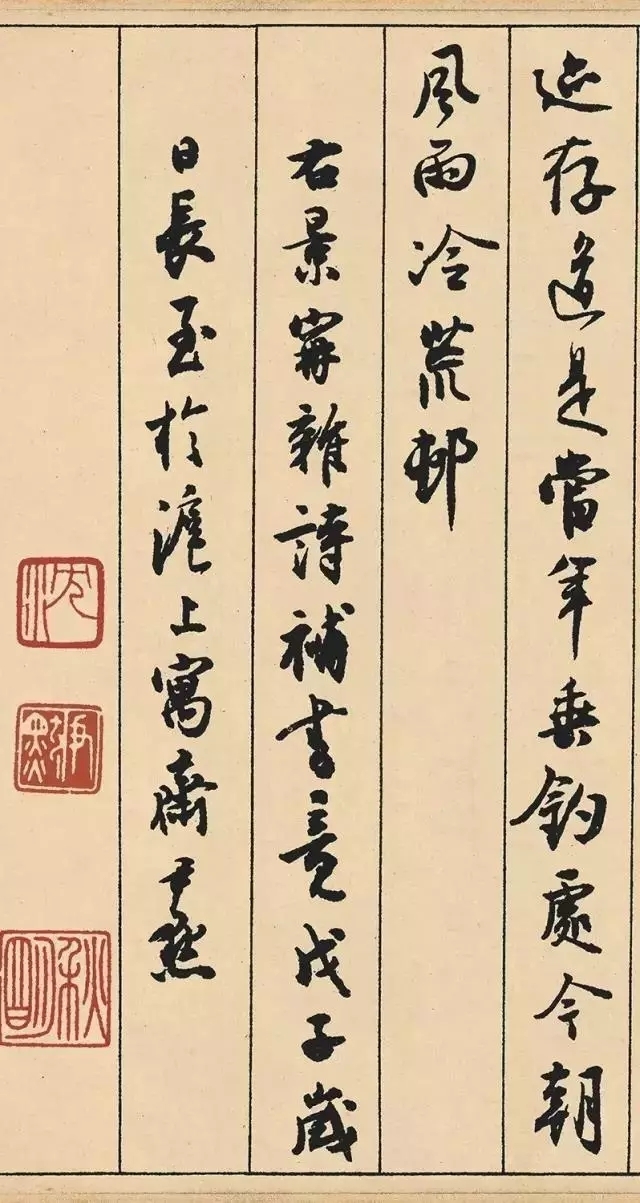 迹存道是當年垂釣處今朝
風雨冷荒邨
右景甯雜詩補書竟戊子歲
日長至於滬上寓齋尹默
沈
尹默
秋明